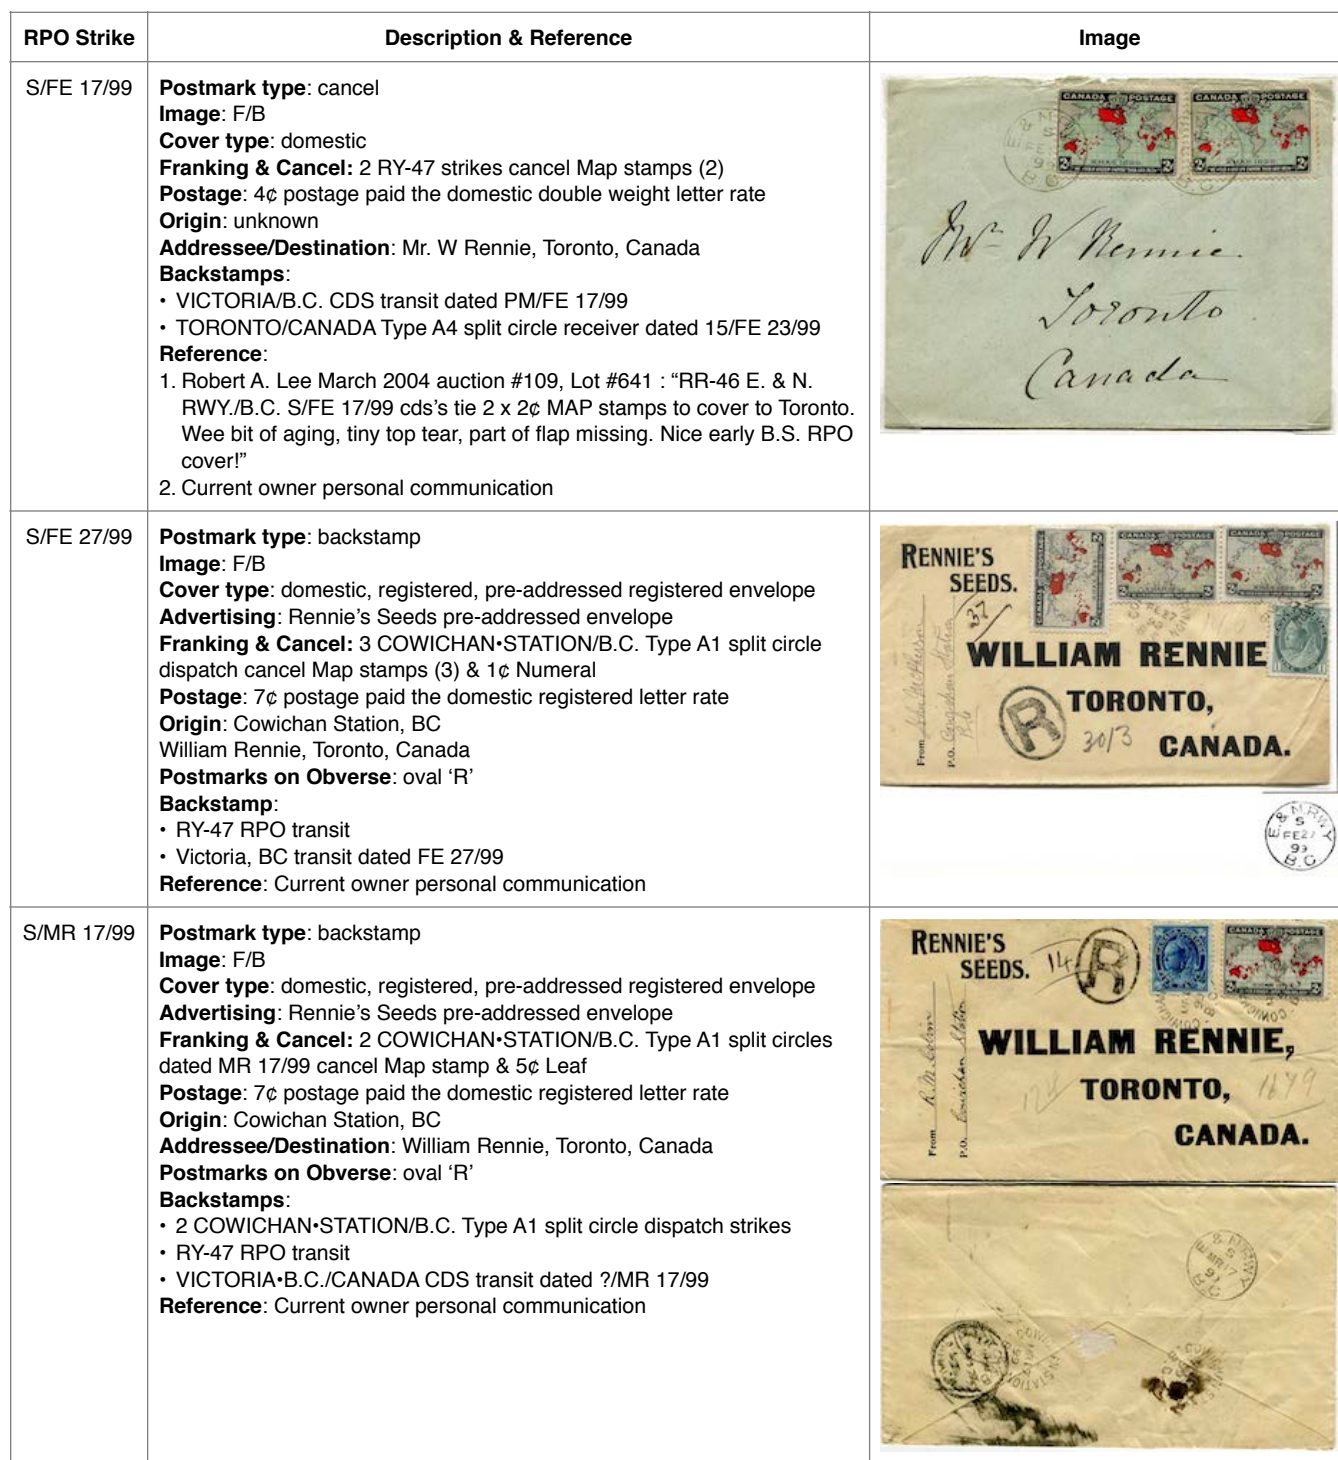 RPO Strike
Description & Reference
Image
S/FE 17/99
Postmark type: cancel
Image: F/B
Cover type: domestic
Franking & Cancel: 2 RY-47 strikes cancel Map stamps (2)
Postage: 4¢ postage paid the domestic double weight letter rate
Origin: unknown
Addressee/Destination: Mr. W Rennie, Toronto, Canada
Backstamps:
• VICTORIA/B.C. CDS transit dated PM/FE 17/99
• TORONTO/CANADA Type A4 split circle receiver dated 15/FE 23/99
Reference:
1. Robert A. Lee March 2004 auction #109, Lot #641 : “RR-46 E. & N.
RWY./B.C. S/FE 17/99 cds’s tie 2 x 2¢ MAP stamps to cover to Toronto.
Wee bit of aging, tiny top tear, part of flap missing. Nice early B.S. RPO
cover!”
2. Current owner personal communication
CANADA POSTAGE
CANADA POSTAGE
XMAS 1898
XMAS 1898
E. & N.
S
FE
B.C.
B.C.
Mr W Rennie
Toronto
Canada
S/FE 27/99
Postmark type: backstamp
Image: F/B
Cover type: domestic, registered, pre-addressed registered envelope
Advertising: Rennie’s Seeds pre-addressed envelope
Franking & Cancel: 3 COWICHAN•STATION/B.C. Type A1 split circle
dispatch cancel Map stamps (3) & 1¢ Numeral
Postage: 7¢ postage paid the domestic registered letter rate
Origin: Cowichan Station, BC
William Rennie, Toronto, Canada
Postmarks on Obverse: oval ‘R’
Backstamp:
• RY-47 RPO transit
• Victoria, BC transit dated FE 27/99
Reference: Current owner personal communication
CANADA POSTAGE
CANADA POSTAGE
CANADA POSTAGE
RENNIE'S
SEEDS.
37
WILLIAM RENNIE
TORONTO,
CANADA.
R
3013
From
P.O.
E. & N. RWY
S
FE 27
99
B.C.
S/MR 17/99
Postmark type: backstamp
Image: F/B
Cover type: domestic, registered, pre-addressed registered envelope
Advertising: Rennie’s Seeds pre-addressed envelope
Franking & Cancel: 2 COWICHAN•STATION/B.C. Type A1 split circles
dated MR 17/99 cancel Map stamp & 5¢ Leaf
Postage: 7¢ postage paid the domestic registered letter rate
Origin: Cowichan Station, BC
Addressee/Destination: William Rennie, Toronto, Canada
Postmarks on Obverse: oval ‘R’
Backstamps:
• 2 COWICHAN•STATION/B.C. Type A1 split circle dispatch strikes
• RY-47 RPO transit
• VICTORIA•B.C./CANADA CDS transit dated ?/MR 17/99
Reference: Current owner personal communication
RENNIE'S
SEEDS.
14
R
CANADA POSTAGE
COWICHAN
WILLIAM RENNIE,
TORONTO,
CANADA.
1679
From
P.O. Cowichan Station
E & N. RWY
S
MR 17
99
B.C.